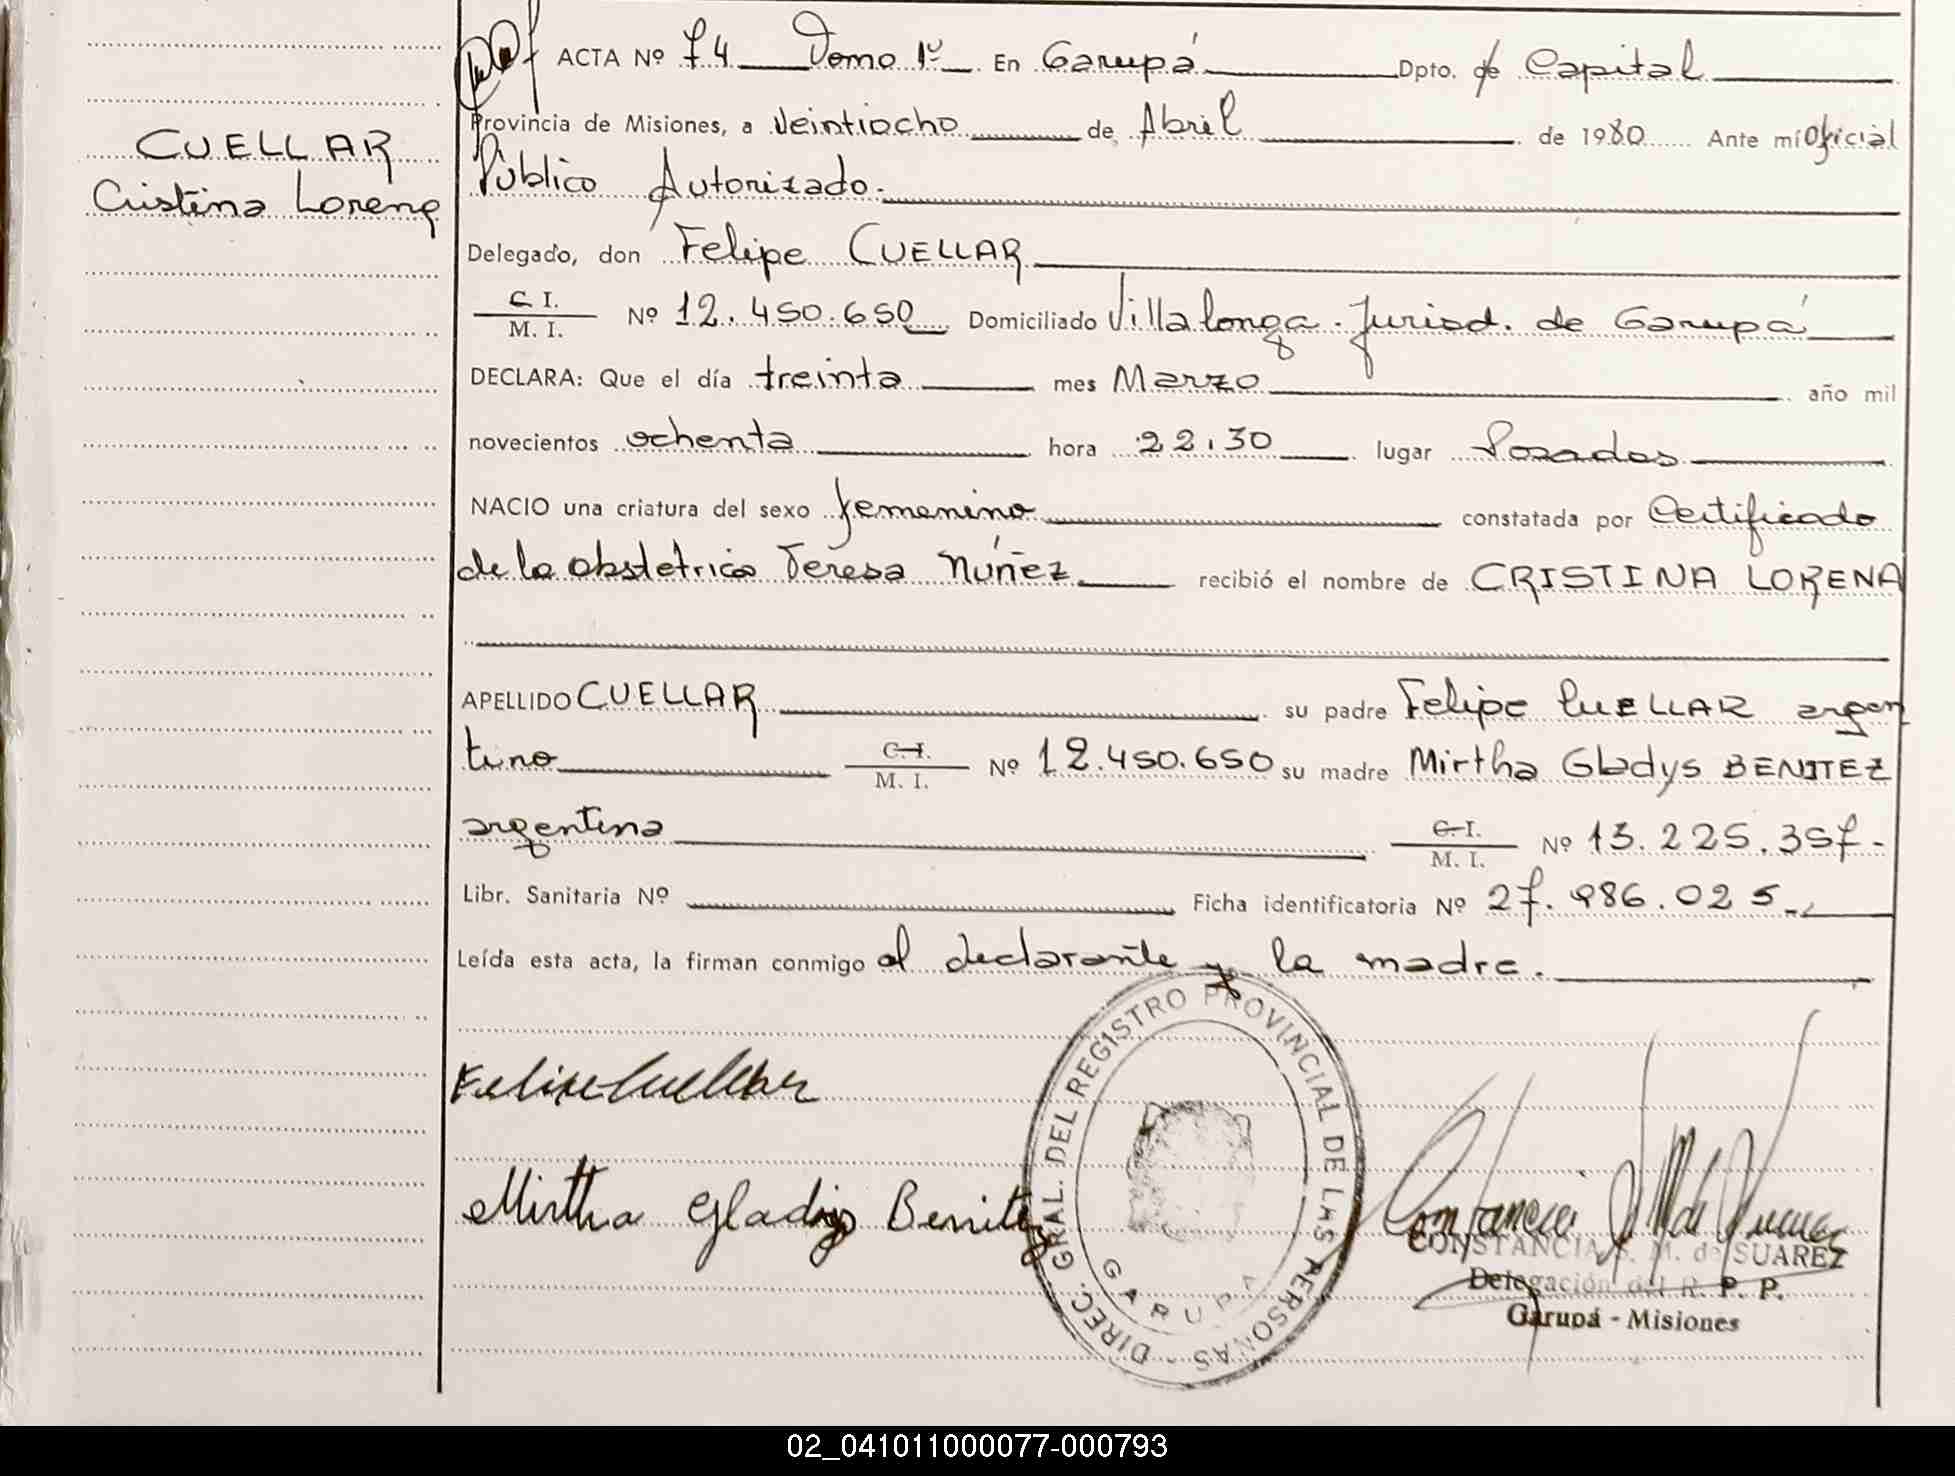 CUELLAR
Cristina Lorena
ACTA Nº 74 Tomo 1º En Garupá Dpto. de Capital
Provincia de Misiones, a Veintiocho de Abril de 1980 Ante mí Oficial
Público Autorizado.
Delegado, don Felipe CUELLAR
C. I.
M. I.
Nº 12.450.650 Domiciliado Villalonga. Jurisd. de Garupá
DECLARA: Que el día treinta mes Marzo año mil
novecientos ochenta hora 22,30 lugar Posadas
NACIO una criatura del sexo femenino constatada por Certificado
de la obstetrica Teresa Núñez recibió el nombre de CRISTINA LORENA
APELLIDO CUELLAR su padre Felipe CUELLAR argen
tino C. I. M. I. Nº 12.450.650 su madre Mirtha Gladys BENITEZ
argentina C. I. M. I. Nº 13.225.357.-
Libr. Sanitaria Nº Ficha identificatoria Nº 27.986.025.-
Leída esta acta, la firman conmigo el declarante y la madre.
Felipe Cuellar
Mirtha Gladys Benitez
DIREC. GRAL. DEL REGISTRO PROVINCIAL DE LAS PERSONAS -
GARUPA
CONSTANCIA S. M. de SUAREZ
Delegación del R. P. P.
Garupá - Misiones
02_041011000077-000793